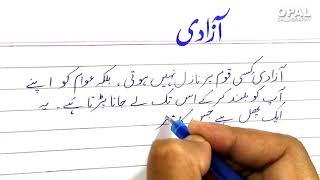 OPAL
آزادی
آزادی کسی قوم پر نازل نہیں ہوتی، بلکہ عوام کو اپنے
آپ کو بلند کر کے اس تک لے جانا پڑتا ہے۔ یہ
ایک پھل ہے جس